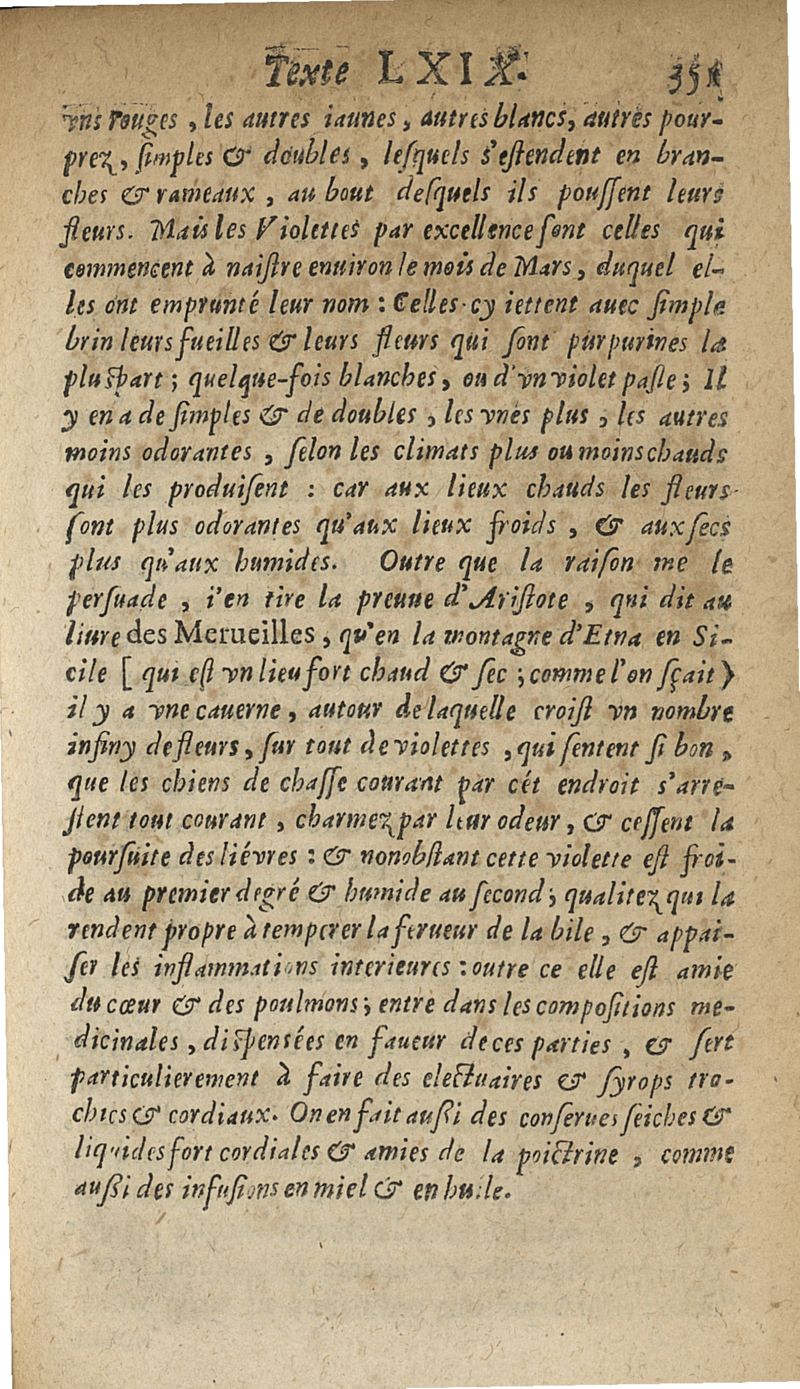 Texte LXIX. 351
vns rouges, les autres iaunes, autres blancs, autres pour-
prez, ſimples & doubles, leſquels s'eſtendent en bran-
ches & rameaux, au bout deſquels ils pouſſent leurs
fleurs. Mais les Violettes par excellence ſont celles qui
commencent à naiſtre enuiron le mois de Mars, duquel el-
les ont emprunté leur nom : Celles-cy iettent auec ſimple
brin leurs fueilles & leurs fleurs qui ſont purpurines la
pluſpart ; quelque-fois blanches, ou d'vn violet paſle ; Il
y en a de ſimples & de doubles, les vnes plus, les autres
moins odorantes, ſelon les climats plus ou moins chauds
qui les produiſent : car aux lieux chauds les fleurs
ſont plus odorantes qu'aux lieux froids, & aux ſecs
plus qu'aux humides. Outre que la raiſon me le
perſuade, i'en tire la preuue d'Ariſtote, qui dit au
liure des Merueilles, qu'en la montagne d'Etna en Si-
cile [ qui eſt vn lieu fort chaud & ſec ; comme l'on ſçait )
il y a vne cauerne, autour de laquelle croiſt vn nombre
infiny de fleurs, ſur tout de violettes, qui ſentent ſi bon,
que les chiens de chaſſe courant par cét endroit s'arre-
ſtent tout courant, charmez par leur odeur, & ceſſent la
pourſuite des liévres : & nonobſtant cette violette eſt froi-
de au premier degré & humide au ſecond ; qualitez qui la
rendent propre à temperer la ferueur de la bile, & appai-
ſer les inflammations interieures : outre ce elle eſt amie
du cœur & des poulmons ; entre dans les compoſitions me-
dicinales, diſpenſées en faueur de ces parties, & ſert
particulierement à faire des electuaires & ſyrops tro-
chies & cordiaux. On en fait auſſi des conſerues ſeiches &
liquides fort cordiales & amies de la poictrine, comme
auſſi des infuſions en miel & en huile.